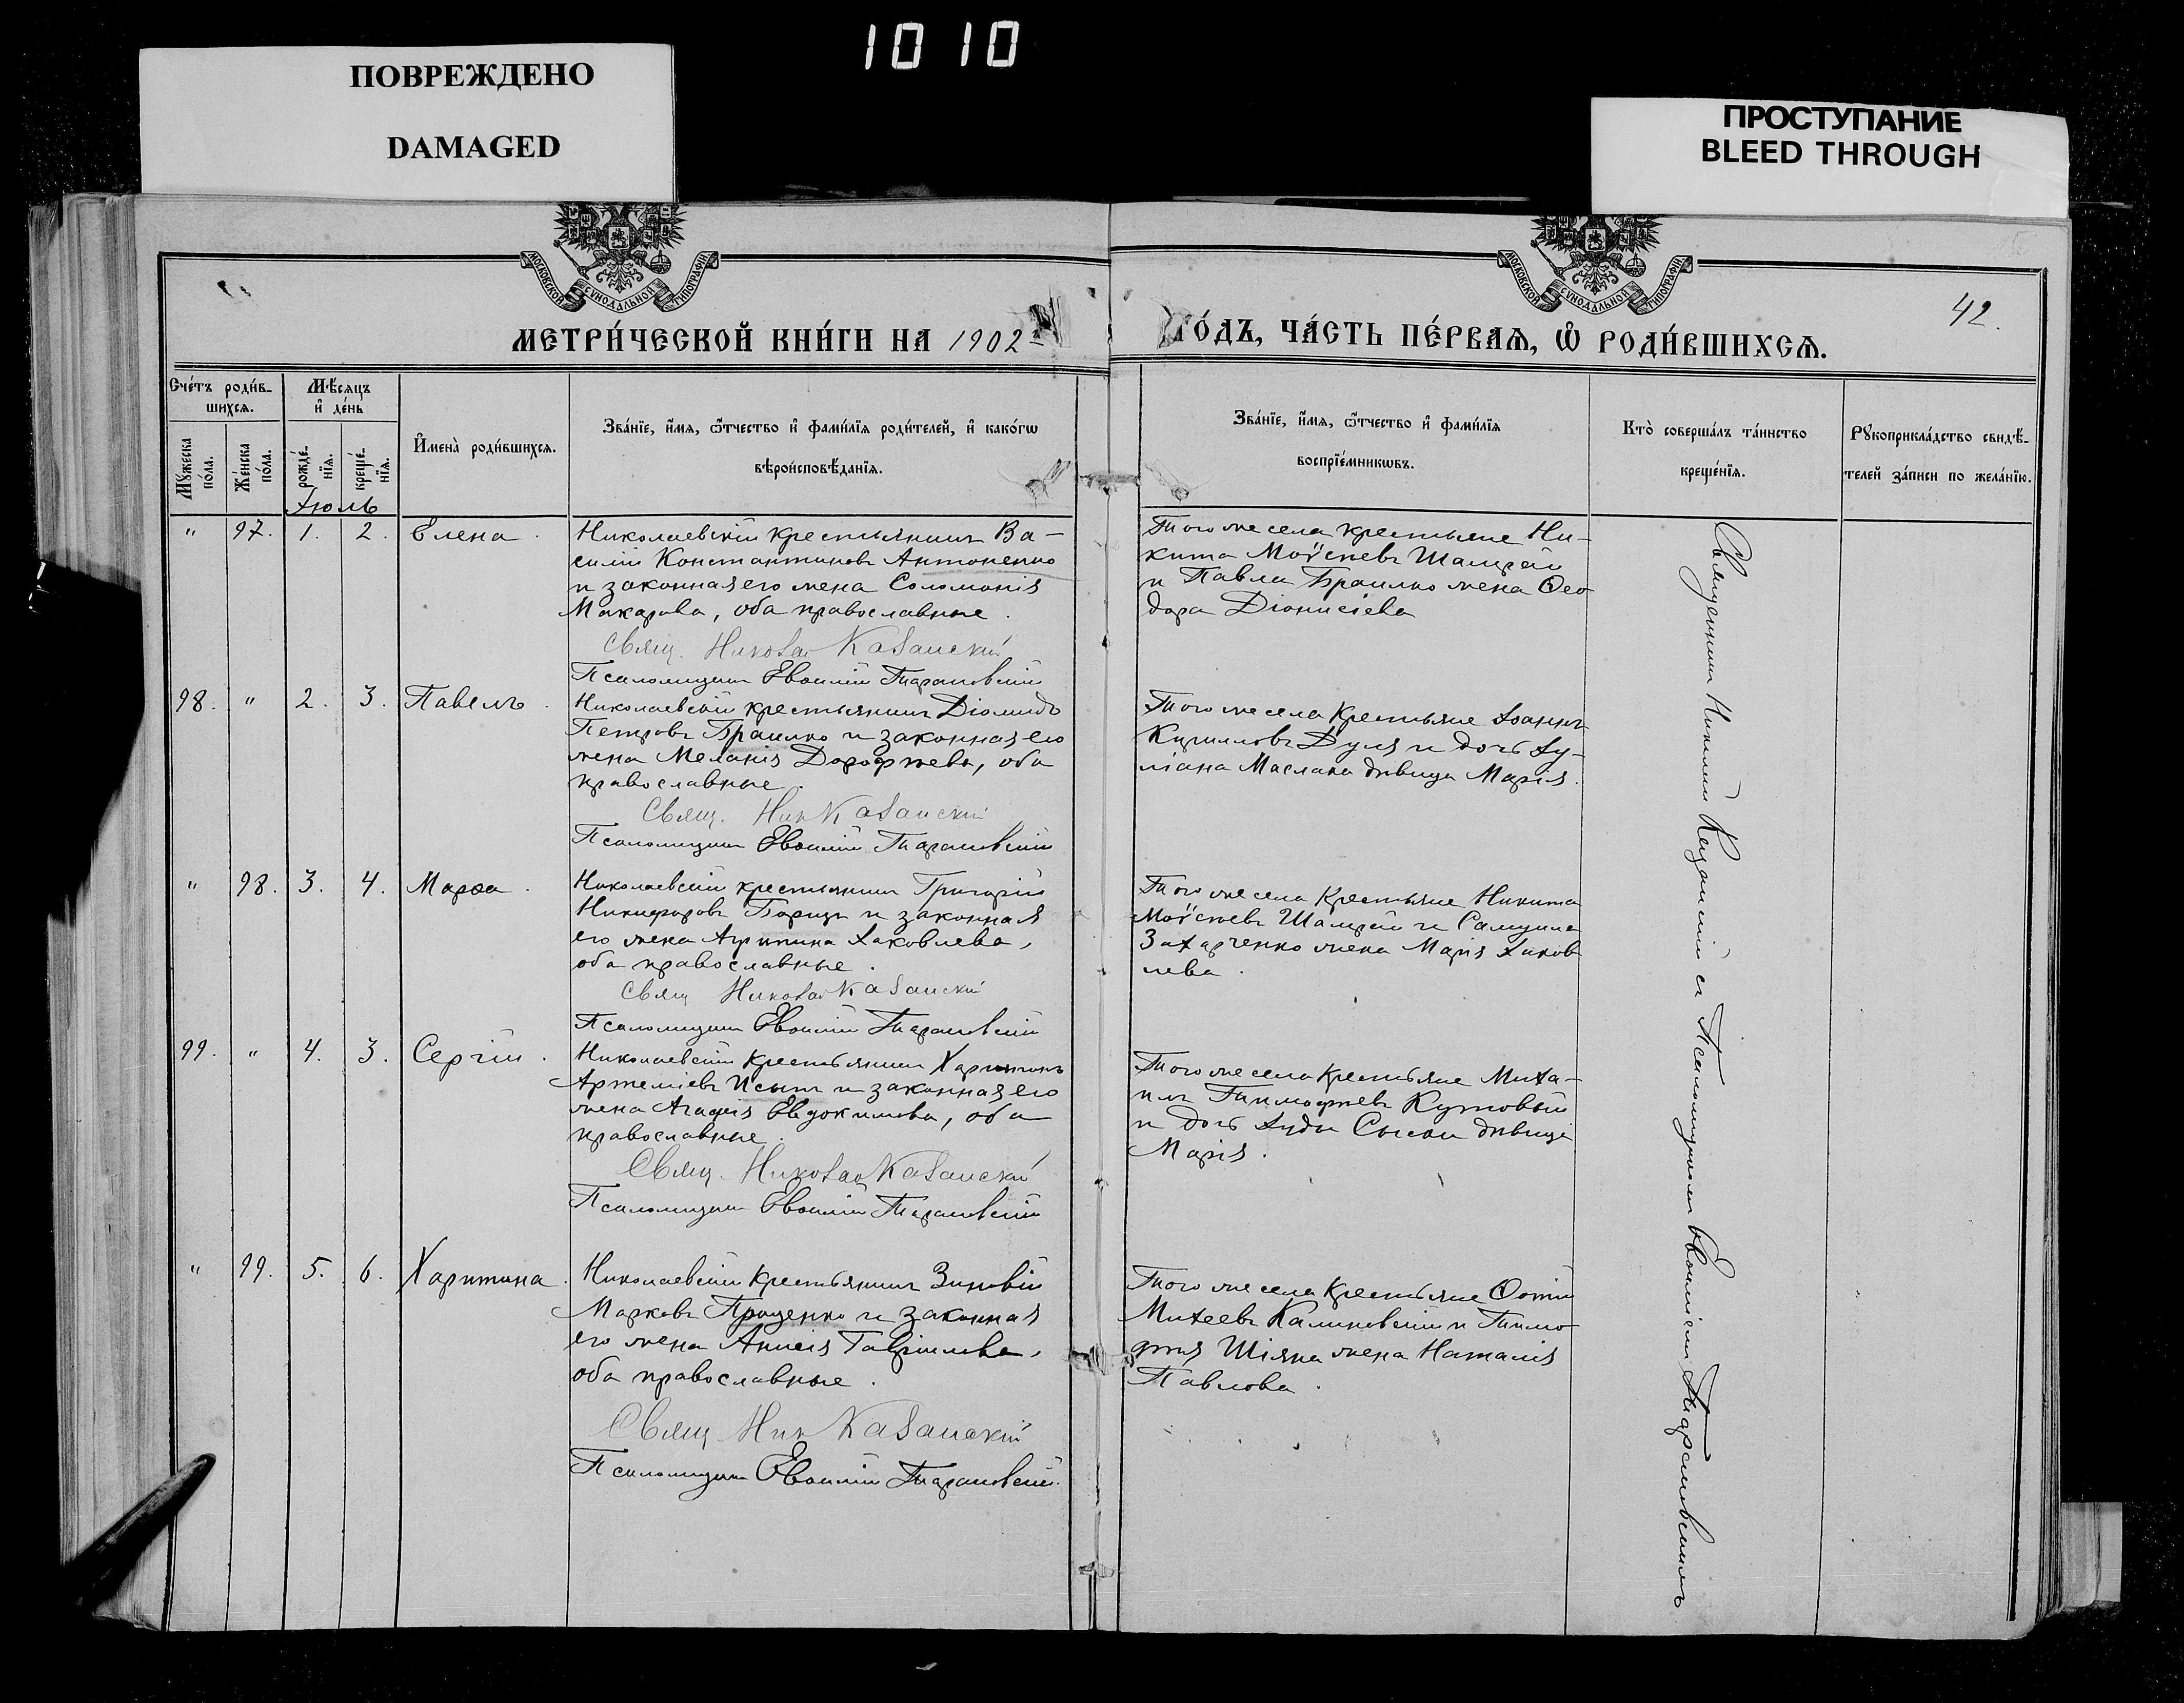 1010
ПОВРЕЖДЕНО
DAMAGED
ПРОСТУПАНИЕ
BLEED THROUGH
МОСКОВСКОЙ СѴНОДАЛЬНОЙ ТИПОГРАФІИ
МОСКОВСКОЙ СѴНОДАЛЬНОЙ ТИПОГРАФІИ
42.
МЕТРИ́ЧЕСКОЙ КНИ́ГИ НА 1902й
ГО́ДЪ, ЧА́СТЬ ПЕ́РВАѦ, Ѡ҆ РОДИ́ВШИХСѦ.
Сче́тъ роди́в-
шихсѧ.
Мѣ́сѧцъ
и҆ де́нь
Мꙋ́жеска
по́ла.
Же́нска
по́ла.
рожде́-
нїѧ.
креще́-
нїѧ.
И҆мена̀ роди́вшихсѧ.
Зва́нїе, и҆́мѧ, ѻ҆́тчество и҆ фами́лїѧ роди́телей, и҆ како́гѡ
вѣроисповѣ́данїѧ.
Зва́нїе, и҆́мѧ, ѻ҆́тчество и҆ фами́лїѧ
воспрїе́мникѡвъ.
Кто̀ соверша́лъ та́инство
креще́нїѧ.
Рꙋкоприкла́дство свидѣ́-
телей за́писи по жела́нїю.
Іюль
" 97. 1. 2. Елена.
Николаевскій крестьянинъ Ва-
силій Константиновъ Антоненко
и законная его жена Соломонія
Макарова, оба православные.
Свящ. Николай Казанскій
Псаломщикъ Евѳимій Тарановскій
Того же села крестьяне Ни-
кита Моѵсеевъ Шамрай
и Павла Браилко жена Ѳео
дора Діонисіева
98. " 2. 3. Павелъ.
Николаевскій крестьянинъ Діомидъ
Петровъ Браилко и законная его
жена Меланія Дорофѣева, оба
православные.
Свящ. Ник Казанскій
Псаломщикъ Евѳимій Тарановскій
Того же села крестьяне Іоаннъ
Кирилловъ Дуля и дочь Іу-
ліана Маслака дѣвица Марія.
" 98. 3. 4. Марѳа.
Николаевскій крестьянинъ Григорій
Никифоровъ Борецъ и законная
его жена Агрипина Іаковлева,
оба православные.
Свящ Николай Казанскій
Псаломщикъ Евѳимій Тарановскій
Того же села крестьяне Никита
Моѵсеевъ Шамрай и Самуила
Захарченко жена Марія Іаков
лева.
99. " 4. 3. Сергій.
Николаевскій крестьянинъ Харитонъ
Артеміевъ и законная его
жена Агафія Евдокимова, оба
православные.
Свящ. Николай Казанскій
Псаломщикъ Евѳимій Тарановскій
Того же села крестьяне Миха-
илъ Тимофѣевъ Кутовый
и дочь Іуды дѣвица
Марія.
" 99. 5. 6. Харитина.
Николаевскій крестьянинъ Зиновій
Марковъ Проценко и законная
его жена Анисія Гавріилова,
оба православные.
Свящ Ник Казанскій
Псаломщикъ Евѳимій Тарановскій.
Того же села крестьяне Ѳотій
Михеевъ Калиновскій и Тимо
фея Шіяна жена Наталія
Павлова.
Священникъ Николай Казанскій съ Псаломщикомъ Евѳиміемъ Тарановскимъ